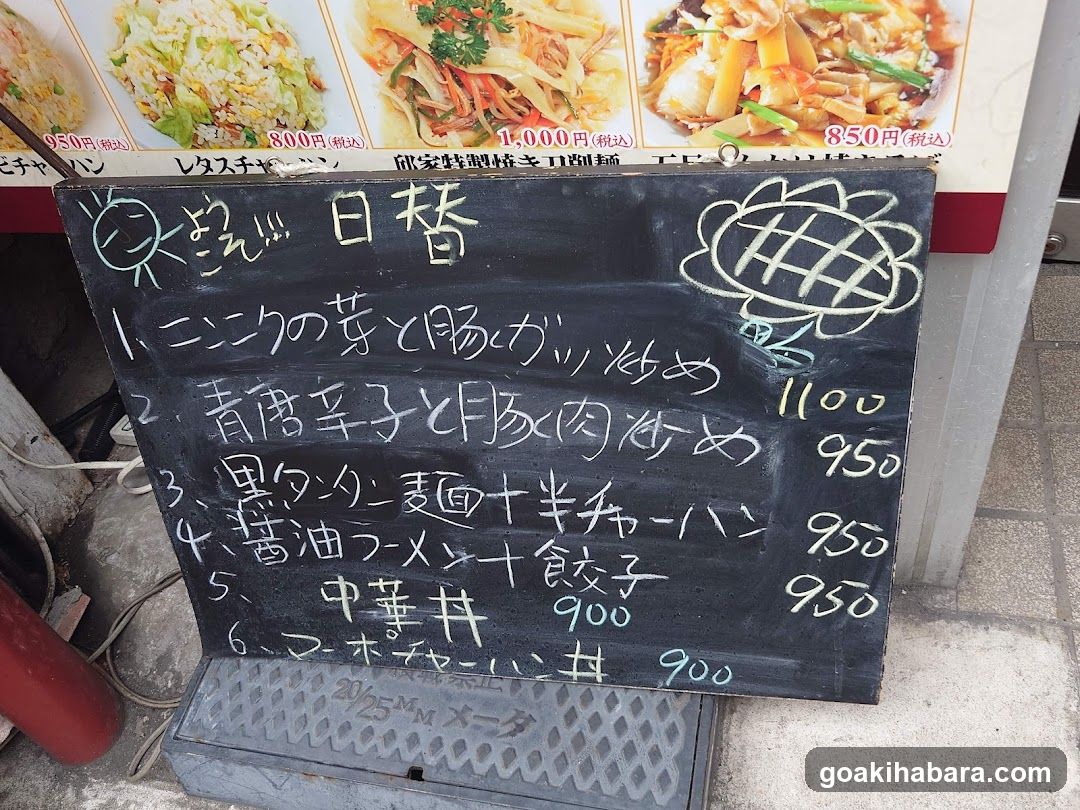 950円(税込)
800円(税込)
1,000円(税込)
850円(税込)
ビチャーハン
レタスチャーハン
邱家特製焼き刀削麺
ようこそ!!! 日替
1、ニンニクの芽と豚ガツ炒め
1100
2、青唐辛子と豚肉炒め
950
3、黒タンタン麺+半チャーハン
950
4、醤油ラーメン+餃子
950
5、中華丼 900
6、マーポチャーハン丼 900
20/25MM メータ
goakihabara.com